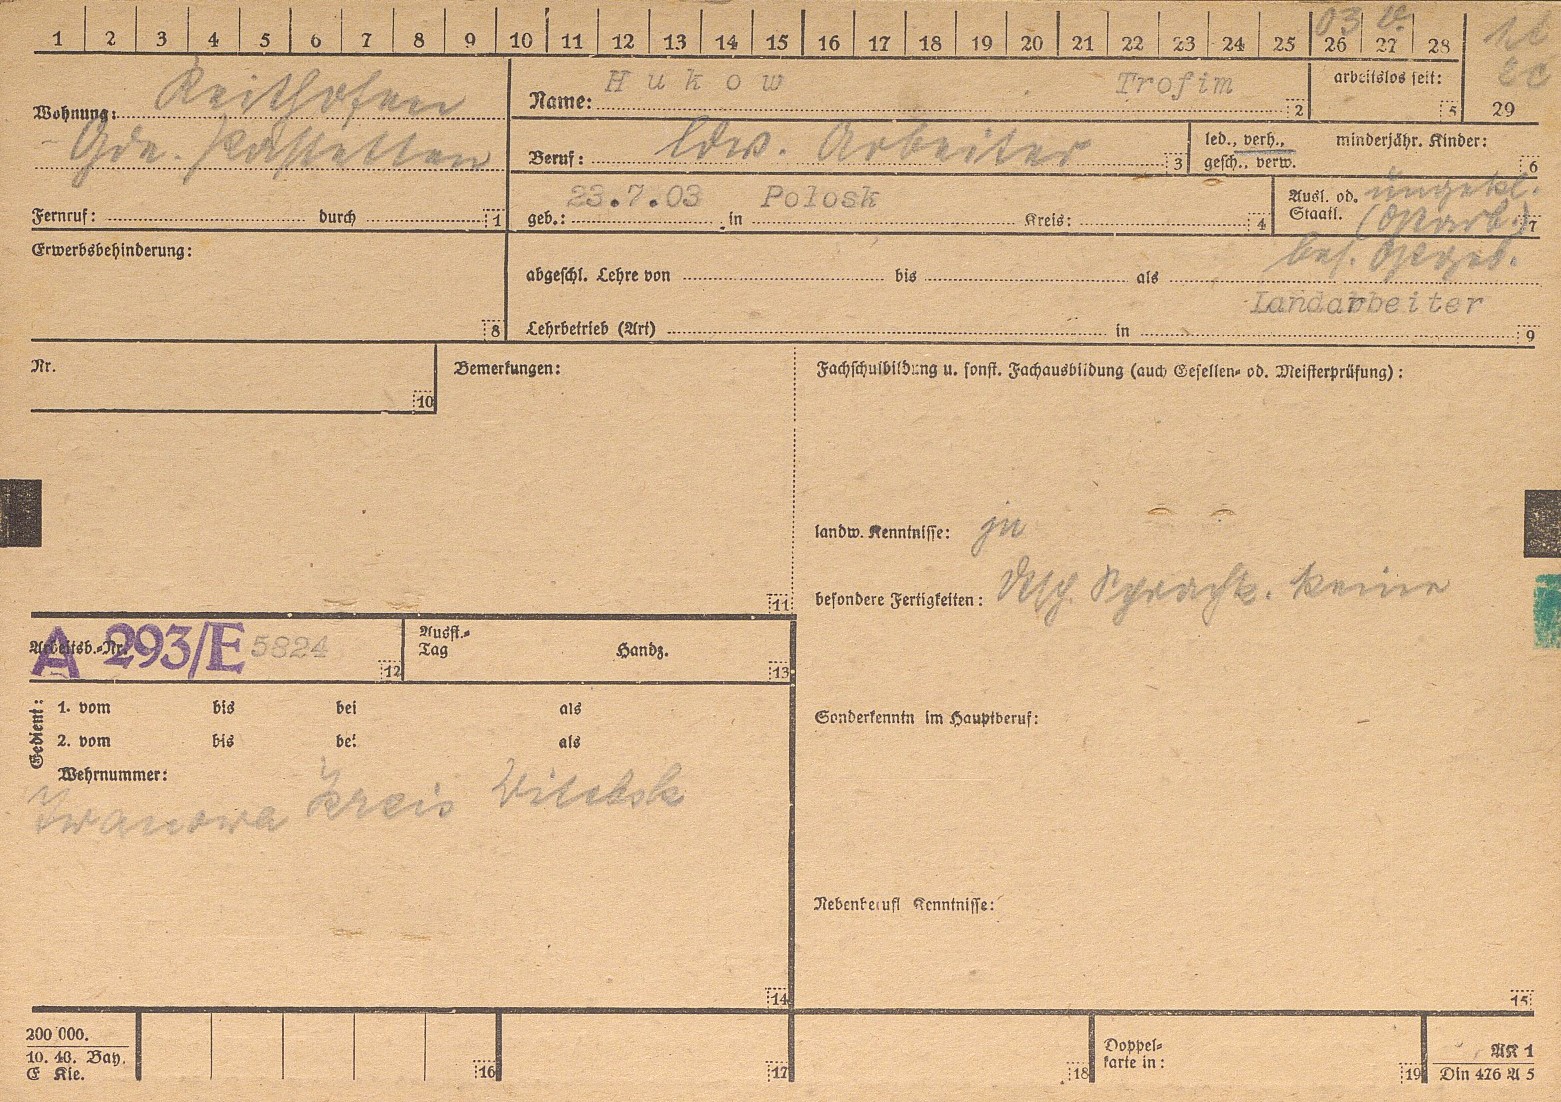 1 2 3 4 5 6 7 8 9 10 11 12 13 14 15 16 17 18 19 20 21 22 23 24 25 26 27 28 29
03
Wohnung: Reithofen
Gde. Pastetten
Fernruf: durch 1
Name: Hukow Trofim 2
arbeitslos seit: 5
Beruf: ldw. Arbeiter 3
led., verh.,
gesch., verw.
minderjähr. Kinder: 6
geb.: 23.7.03 in Polosk Kreis: 4
Ausl. od.
Staatl. ungekl.
(Ostarb.) 7
bes. Ostgeb.
Erwerbsbehinderung: 8
abgeschl. Lehre von bis als
Landarbeiter
Lehrbetrieb (Art) in 9
Nr. 10
Bemerkungen: 11
Fachschulbildung u. sonst. Fachausbildung (auch Gesellen- od. Meisterprüfung):
landw. Kenntnisse: ja
besondere Fertigkeiten: dtsch. Sprachk. keine
Sonderkenntn im Hauptberuf:
Nebenberufl Kenntnisse:
15
Arbeitsb.-Nr. A 293/E 5824 12
Ausst.-
Tag Handz. 13
Gedient:
1. vom bis bei als
2. vom bis bei als
Wehrnummer:
Iwanowa Kreis Witebsk
14
200 000.
10. 40. Bay.
E Kie.
16 17 18
Doppel-
karte in: 19
AK 1
Din 476 A 5